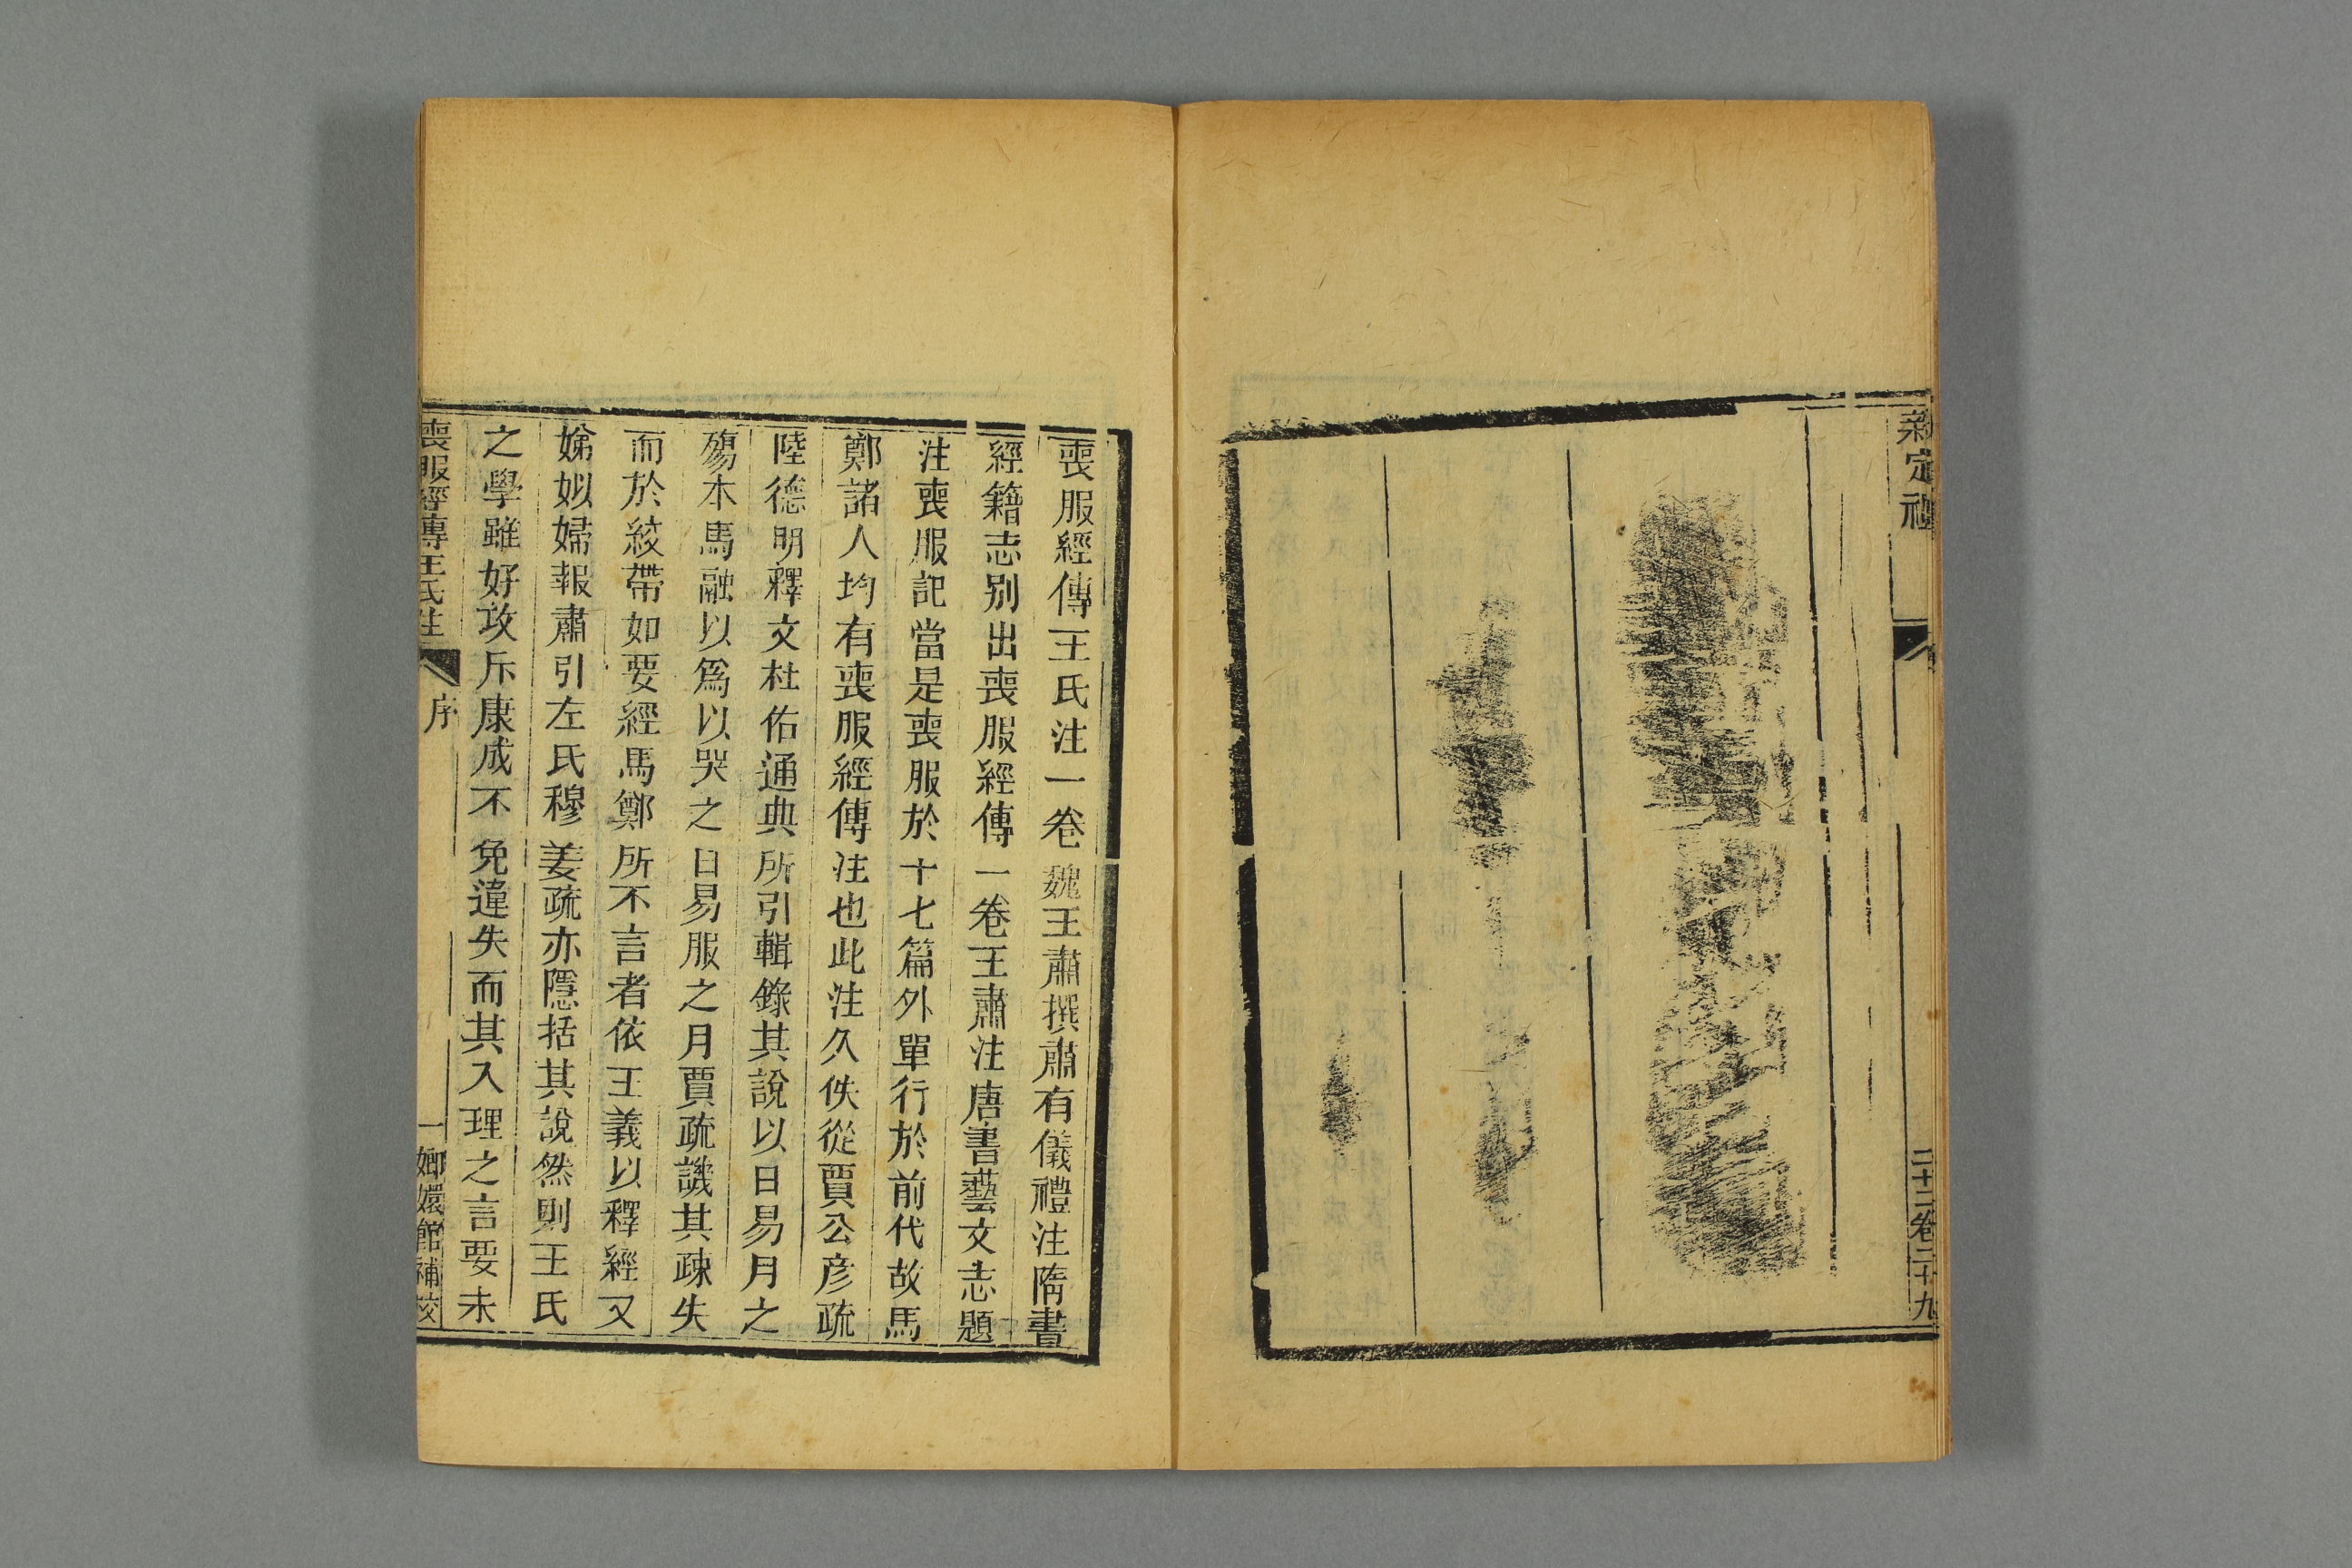 新定禮
二十二卷二十九
喪服經傳王氏注一卷魏王肅撰肅有儀禮注隋書
經籍志别出喪服經傳一卷王肅注唐書藝文志題
注喪服記當是喪服於十七篇外單行於前代故馬
鄭諸人均有喪服經傳注也此注久佚從賈公彦疏
陸德明釋文杜佑通典所引輯錄其說以日易月之
殤本馬融以爲以哭之日易服之月賈疏譏其疎失
而於絞帶如要經馬鄭所不言者依王義以釋經又
娣姒婦報肅引左氏穆姜疏亦隱括其說然則王氏
之學雖好攻斥康成不免違失而其入理之言要未
喪服經傳王氏注
序
一
嫏嬛館補校